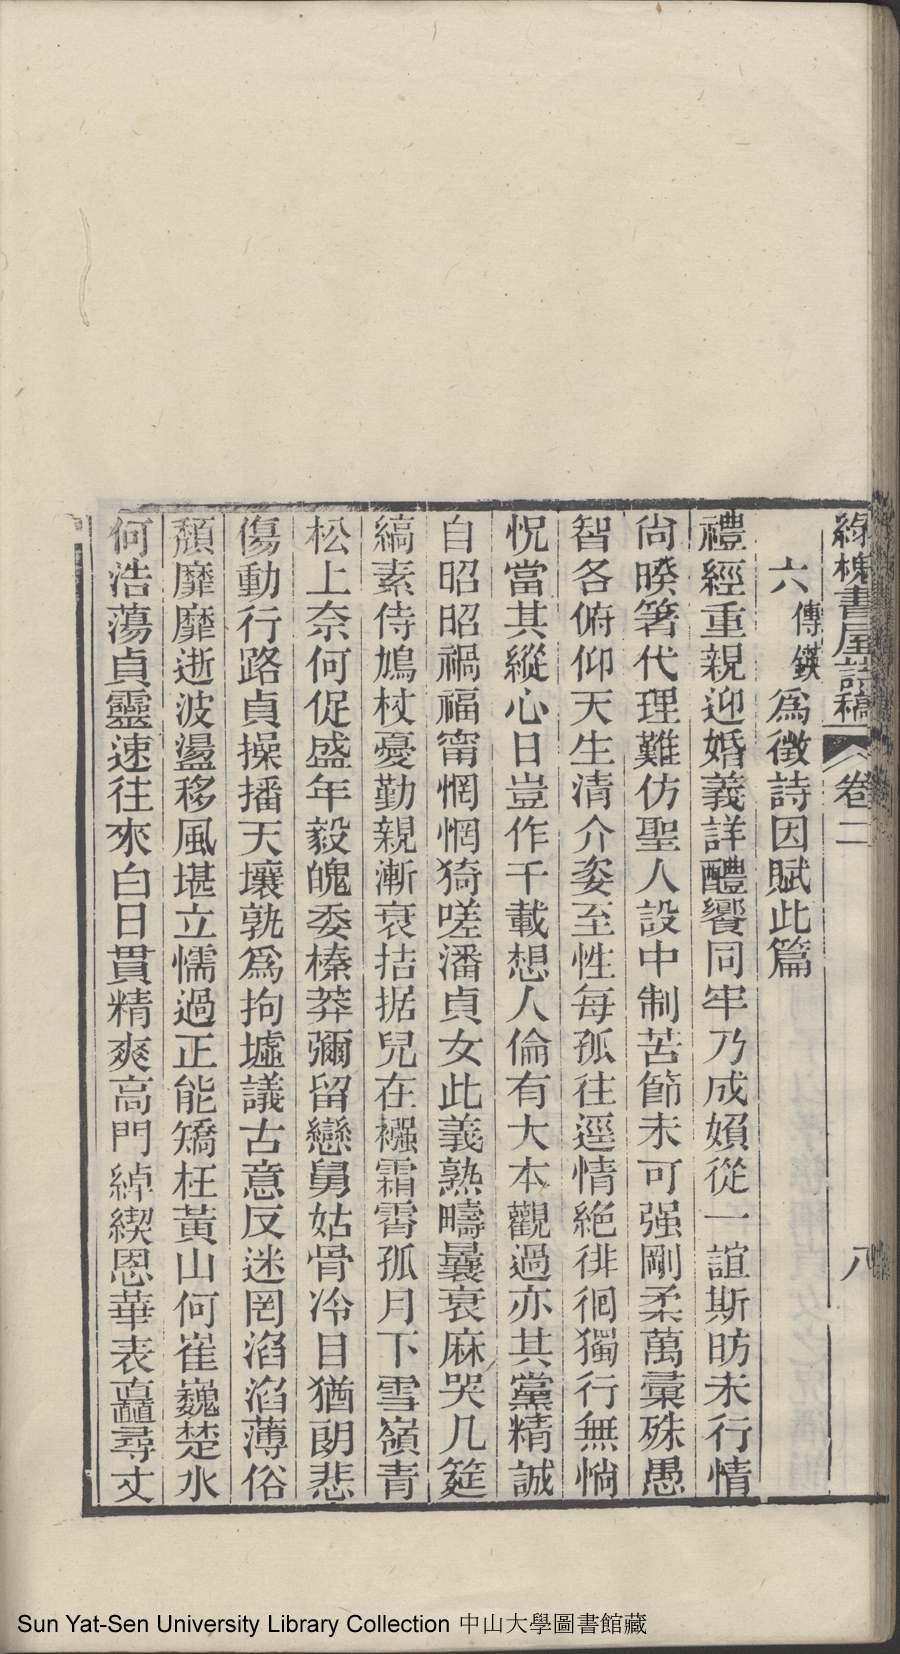 綠槐書屋詩稿 卷二 八
六傳鍈為徵詩因賦此篇
禮經重親迎婚義詳醴饗同牢乃成嬪從一誼斯昉未行情
尙暌箸代理難仿聖人設中制苦節未可强剛柔萬彙殊愚
智各俯仰天生清介姿至性每孤往逕情絶徘徊獨行無惝
怳當其縱心日豈作千載想人倫有大本觀過亦其黨精誠
自昭昭禍福甯惘惘猗嗟潘貞女此義熟疇曩衰麻哭几筵
縞素侍鳩杖憂勤親漸衰拮据兒在襁霜霄孤月下雪嶺青
松上奈何促盛年毅魄委榛莽彌留戀舅姑骨冷目猶朗悲
傷動行路貞操播天壤孰爲拘墟議古意反迷罔滔滔薄俗
頹靡靡逝波盪移風堪立懦過正能矯枉黃山何崔巍楚水
何浩蕩貞靈速往來白日貫精爽高門綽楔恩華表矗尋丈
Sun Yat-Sen University Library Collection 中山大學圖書館藏